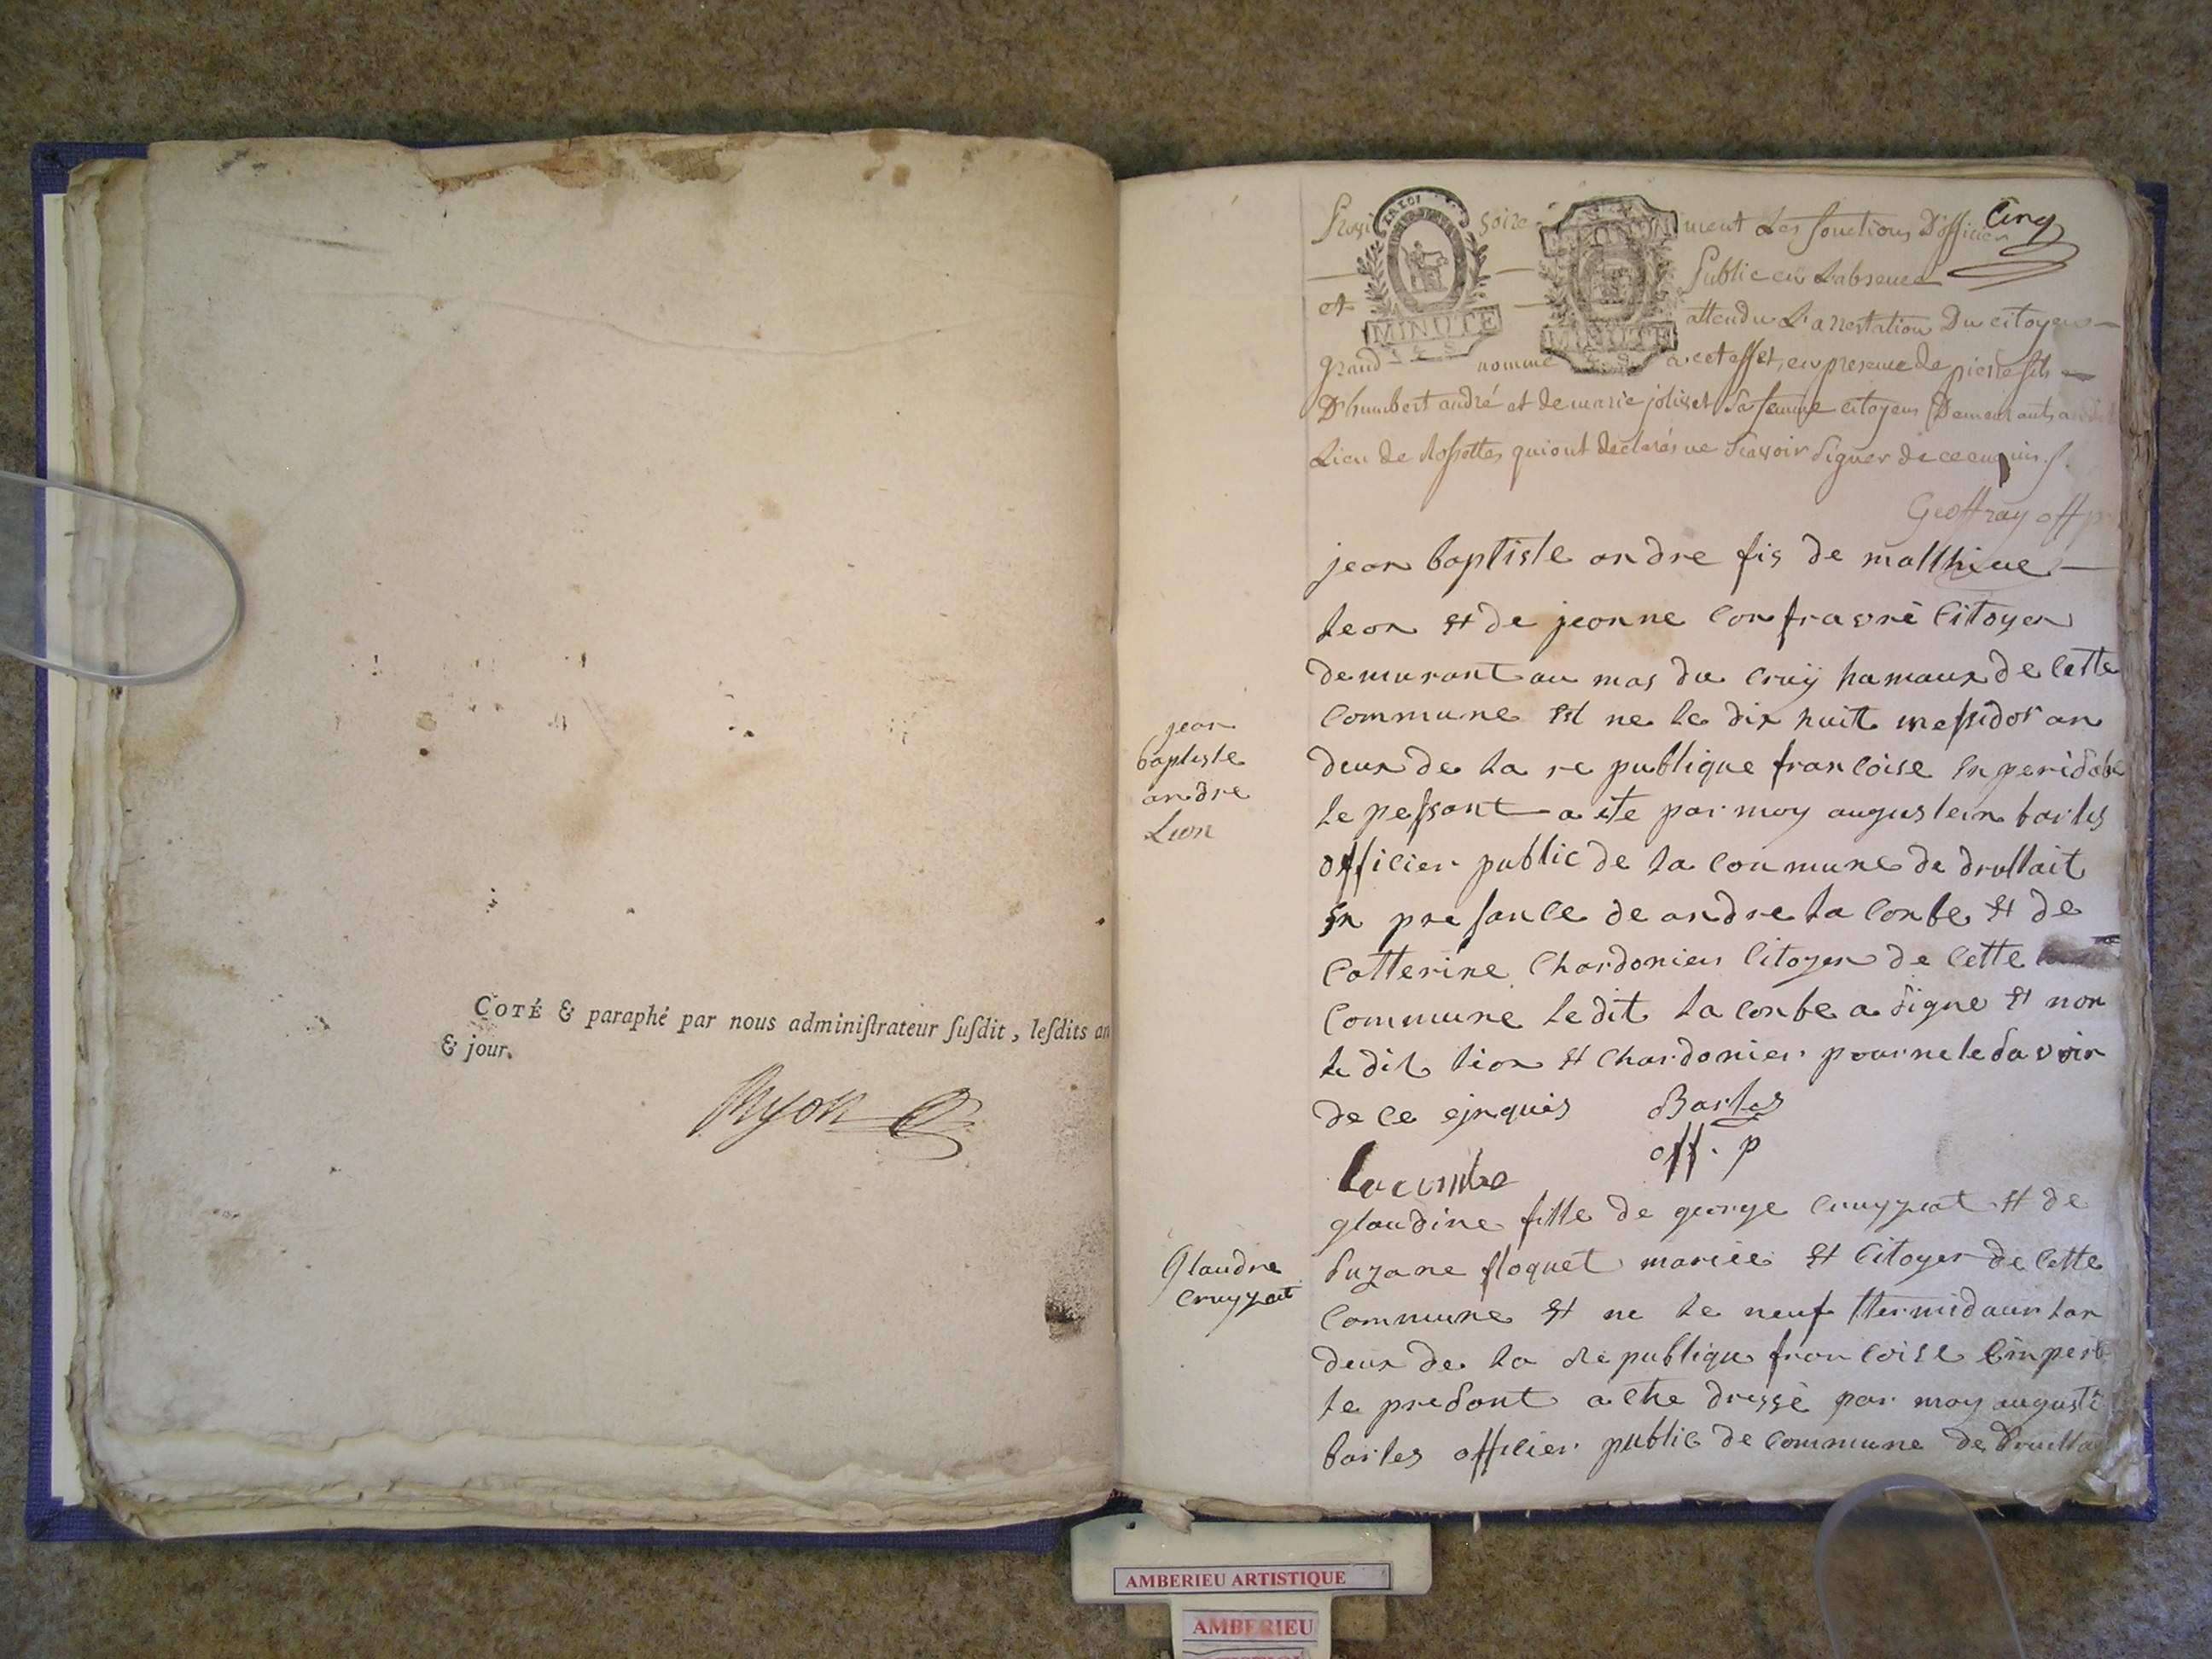 COTÉ & paraphé par nous adminiſtrateur ſuſdit, leſdits an
& jour.
Cinq
Provi soire ment Les fonctions D'officier
et Public en L'absence
MINUTE
MINUTE
attendu L'arrestation Du citoyen
Grand nommé a cet effet, en presence de pierre fils
D'humbert andré et de marie jolivet Sa femme citoyens Demeurants au
Lieu de Rossettes qui ont declarés ne Scavoir Signer de ce enquis.
Geoffray off p
jean baptiste andre fis de matthieue
leon et de jeanne Confravre Citoyen
demurant au mas du Cruÿ hamaux de Cette
Commune Est ne le dix huitt messidor an
deux de la re publique francoise
le pessant a ete par moy augustein barles
officier public de la Commune de drullait
En presance de andre la Conbe et de
Catterine Chardonier Citoyen de Cette
Commune ledit la Conbe a Signe et non
le dit lion et Chardonier pour ne le Savoir
de ce ejnquis Barles
off. p
Lacombe
jean
baptiste
andre
Lion
glaudine fille de george Cruyzat et de
Suzane floquet mariée et Citoyen de Cette
Commune et ne le neuf ttermidaur lan
deux de la Republique francoise
le predant a ethe dressé par moy augusti
barles officier public de Commune de Drulla
Glaudne
Cruyzat
AMBERIEU ARTISTIQUE
AMBERIEU